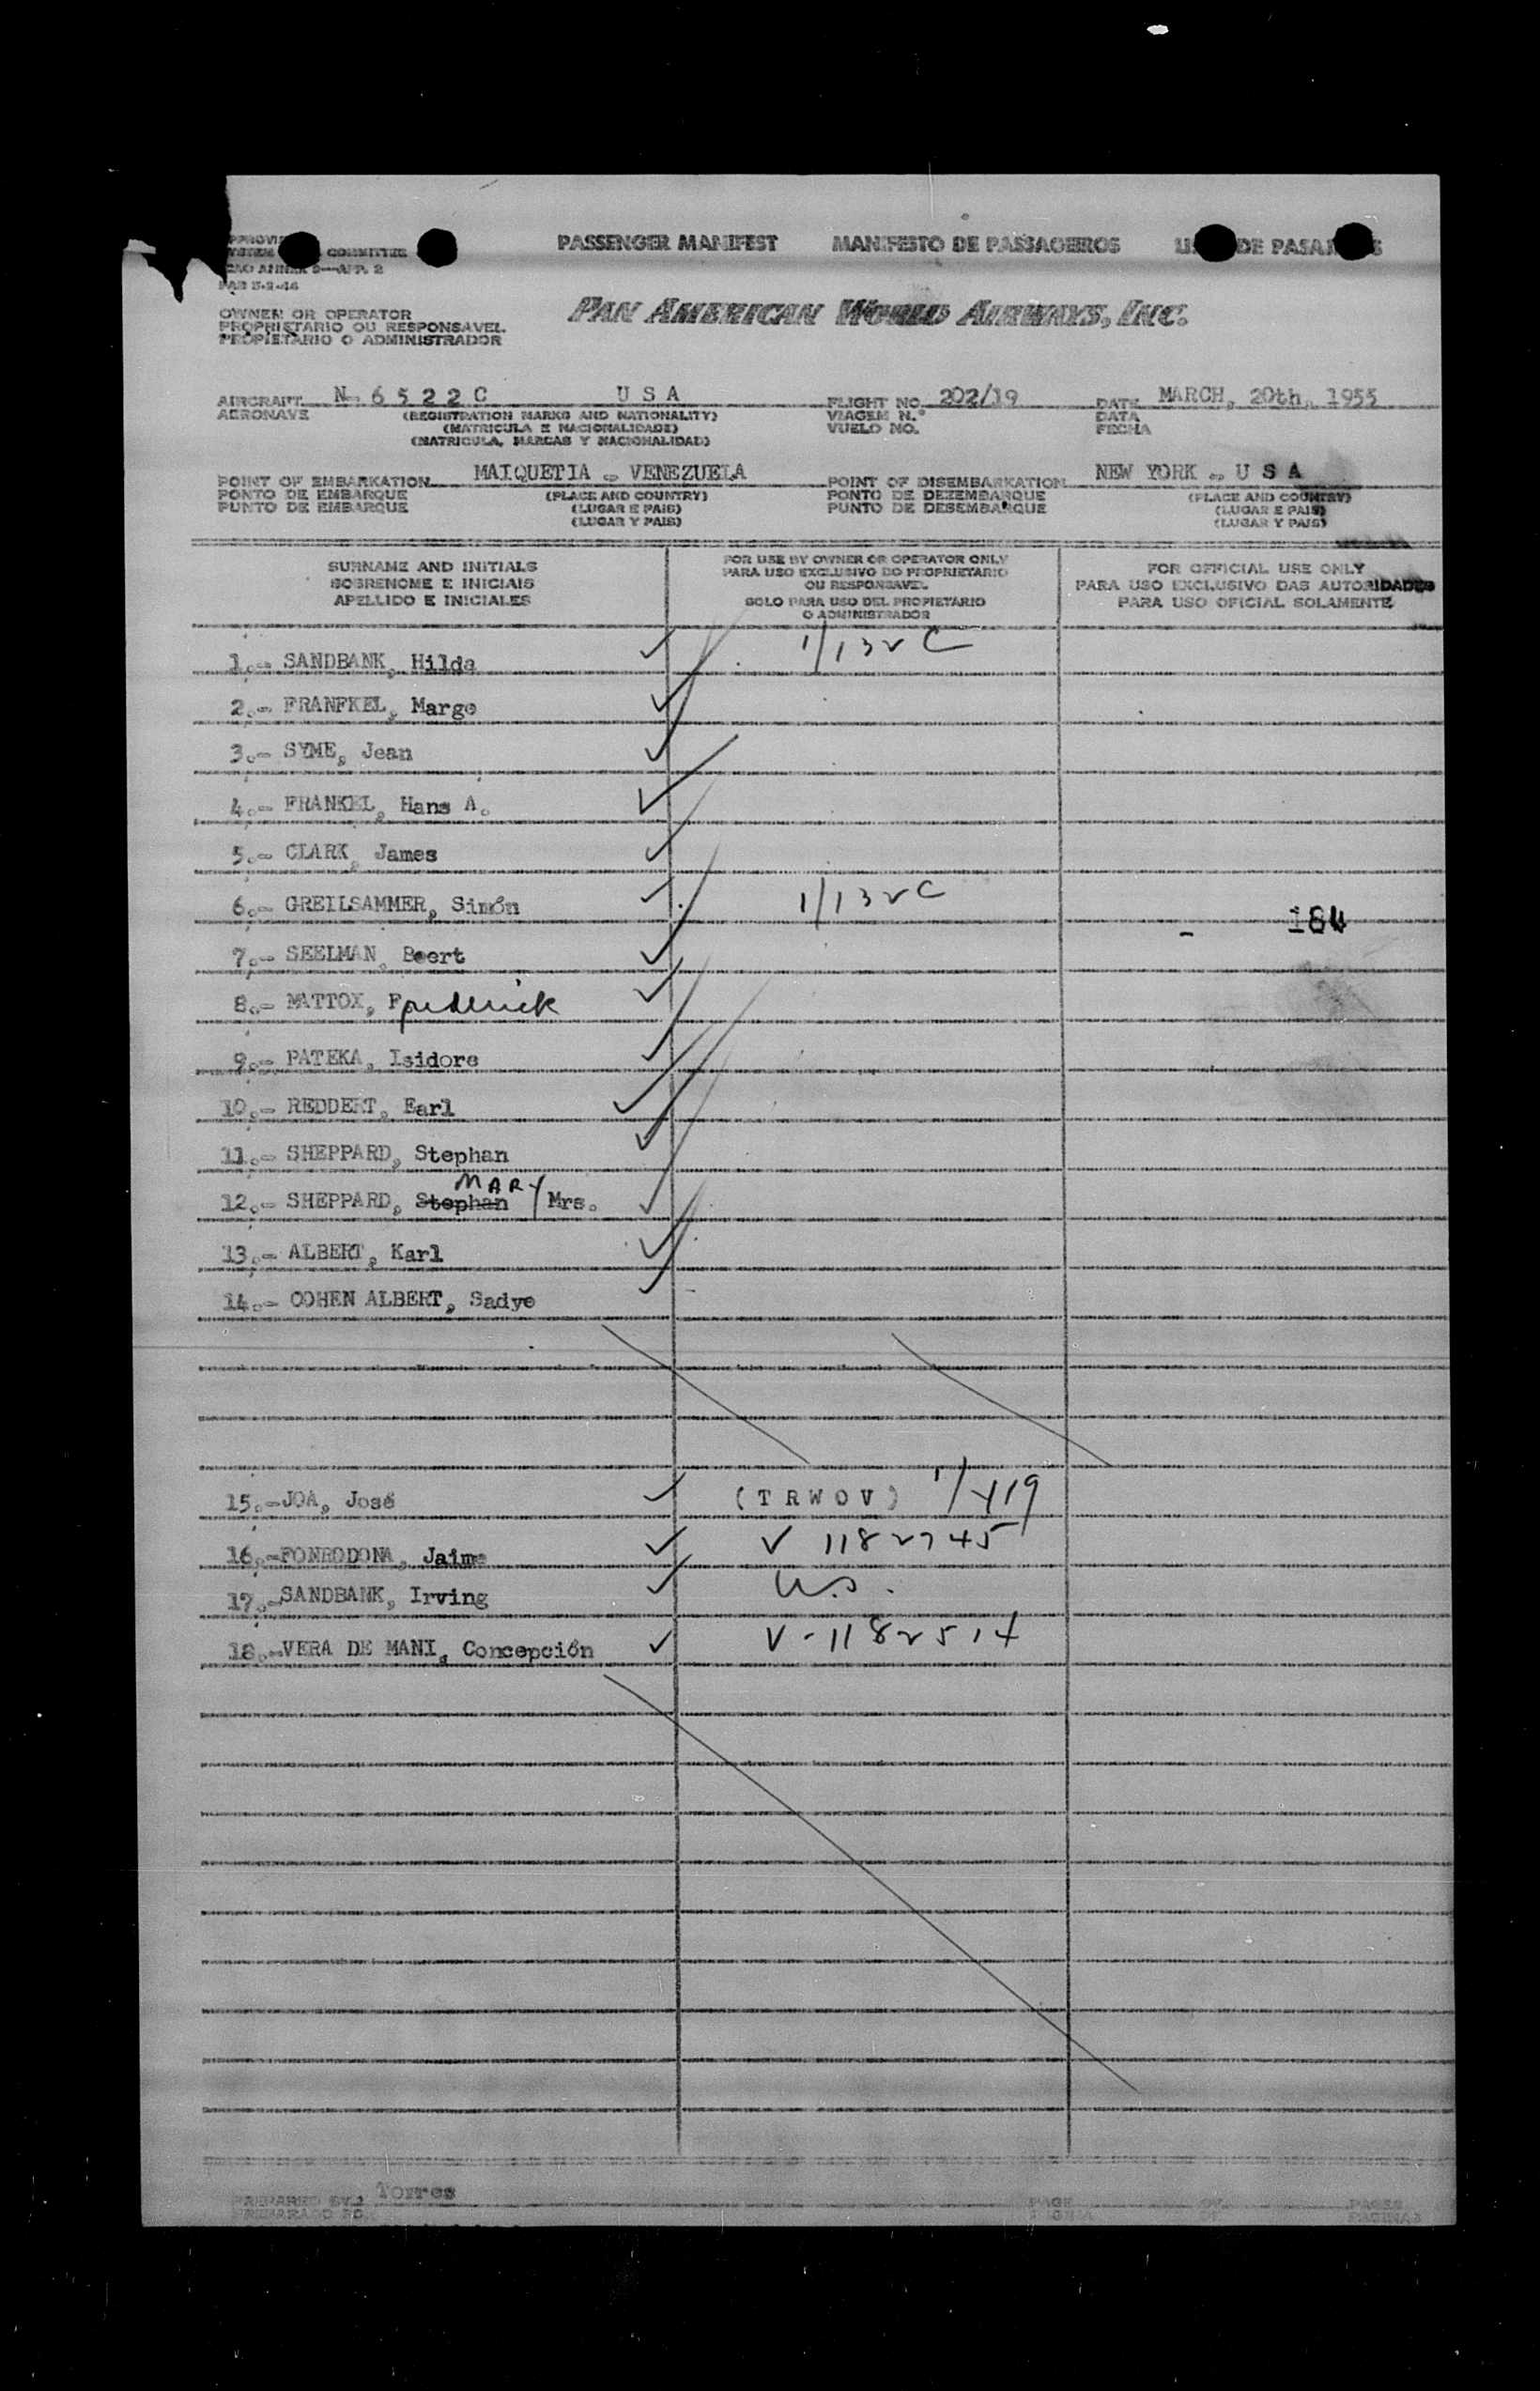 PASSENGER MANIFEST MANIFESTO DE PASSAGEIROS DE
COMMITTEE
PAB 5-2-46
OWNER OR OPERATOR
PROPRIETARIO OU RESPONSAVEL
PROPIETARIO O ADMINISTRADOR
PAN AMERICAN WORLD AIRWAYS, INC.
AIRCRAFT N- 6 5 2 2 C U S A FLIGHT NO. 202/19 DATE MARCH, 20th, 1955
AERONAVE (REGISTRATION MARKS AND NATIONALITY) VIAGEM N.º DATA
(MATRICULA E NACIONALIDADE) VUELO NO. FECHA
(MATRICULA, MARCAS Y NACIONALIDAD)
POINT OF EMBARKATION MAIQUETIA - VENEZUELA POINT OF DISEMBARKATION NEW YORK - U S A
PONTO DE EMBARQUE (PLACE AND COUNTRY) PONTO DE DEZEMBARQUE (PLACE AND COUNTRY)
PUNTO DE EMBARQUE (LUGAR E PAIS) PUNTO DE DESEMBARQUE (LUGAR E PAIS)
(LUGAR Y PAIS) (LUGAR Y PAIS)
SURNAME AND INITIALS
SOBRENOME E INICIAIS
APELLIDO E INICIALES
FOR USE BY OWNER OR OPERATOR ONLY
PARA USO EXCLUSIVO DO PROPRIETARIO
OU RESPONSAVEL
SOLO PARA USO DEL PROPIETARIO
O ADMINISTRADOR
FOR OFFICIAL USE ONLY
PARA USO EXCLUSIVO DAS AUTORIDADES
PARA USO OFICIAL SOLAMENTE
1.- SANDBANK, Hilda ✓ 1/132C
2.- FRANFKEL, Margo ✓
3.- SYME, Jean ✓
4.- FRANKEL, Hans A. ✓
5.- CLARK, James ✓
6.- GREILSAMMER, Simón ✓ 1/132C - 184
7.- SEELMAN, Beert ✓
8.- MATTOX, Frederick ✓
9.- PATEKA, Isidore ✓
10.- REDDERT, Earl ✓
11.- SHEPPARD, Stephan ✓
MARY
12.- SHEPPARD, Stephan / Mrs. ✓
13.- ALBERT, Karl ✓
14.- COHEN ALBERT, Sadye ✓
15.-JOA, José ✓ (T R W O V) 1/419
16.-FONRODONA, Jaime ✓ V 1182745
17.-SANDBANK, Irving ✓ U.S.
18.-VERA DE MANI, Concepción ✓ V-1182514
PREPARED BY Torres PAGE OF PAGES
PREPARADO PO